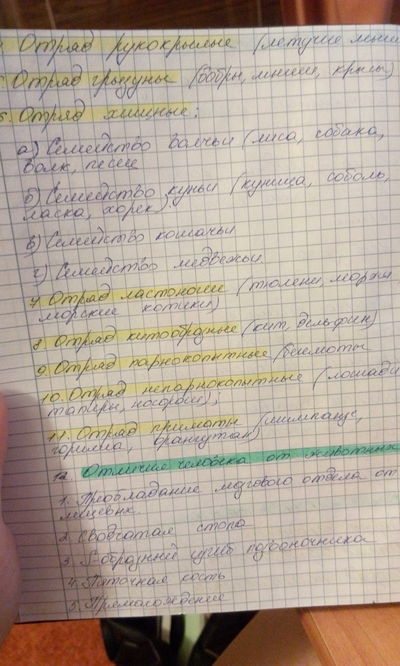 Отряд рукокрылые (летучие мыши
Отряд грызуны (бобры, мыши, крысы)
Отряд хищные:
а) Семейство волчьи (лиса, собака,
волк, песец
б) Семейство куньи (куница, соболь,
ласка, хорек)
в) Семейство кошачьи
г) Семейство медвежьи
7. Отряд ластоногие (тюлени, моржи
морские котики)
8. Отряд китообразные (кит, дельфин)
9. Отряд парнокопытные (бегемоты
10. Отряд непарнокопытные (лошади
тапиры, носороги);
11. Отряд приматы (шимпанзе,
горилла, орангутан)
12. Отличие человека от животных
1. Преобладание мозгового отдела от
лицевых
2. Сводчатая стопа
3. S-образный изгиб позвоночника
4. Пяточная кость
5. Прямохождение